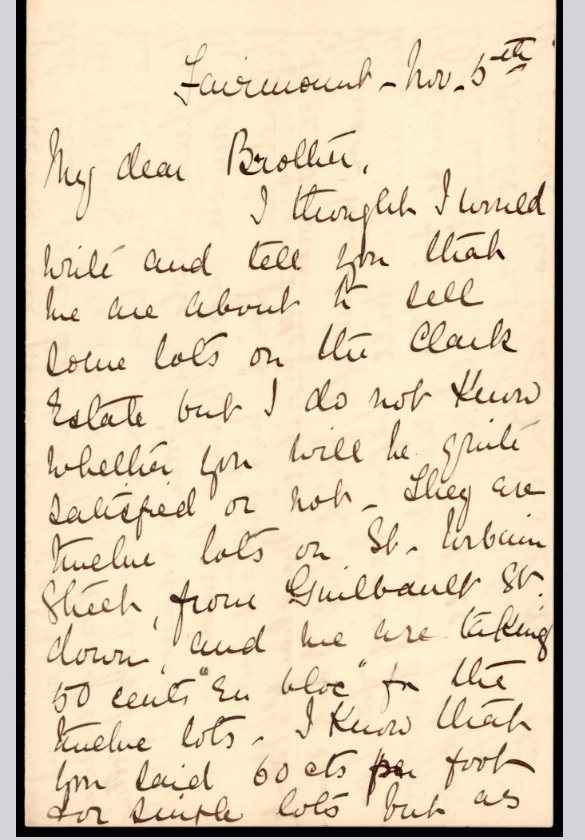 Fairmount - Nov. 5th
My dear Brother,
I thought I would
write and tell you that
we are about to sell
some lots on the Clark
Estate but I do not know
whether you will be quite
satisfied or not - They are
twelve lots on St. Urbain
Street, from Guilbault St.
down, and we are taking
50 cents "En bloc" for the
twelve lots - I know that
you said 60 cts per foot
for single lots but as